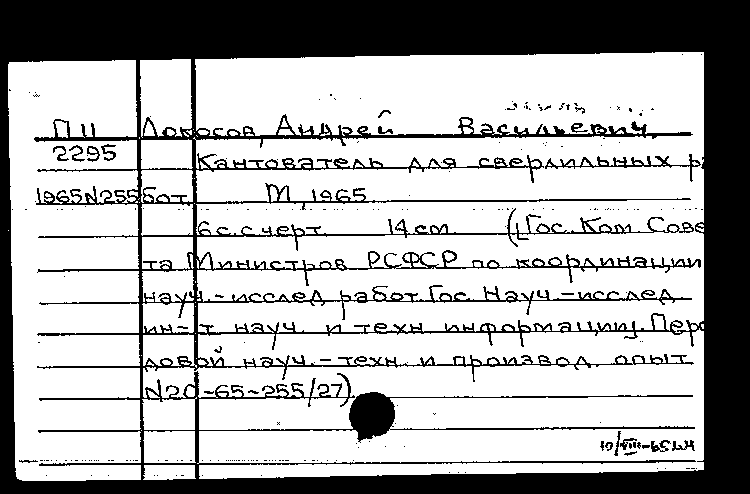 П11 Локосов, Андрей Васильевич.
2295
Кантователь для сверлильных ра
1965N255 бот. М, 1965.
6 с. с черт. 14 см. (Гос. Ком Сове
та Министров РСФСР по координации
науч.-исслед работ. Гос. Науч.-исслед
ин-т науч. и техн информации]. Пере
довой науч.-техн. и производ. опыт
N20-65-255/27)